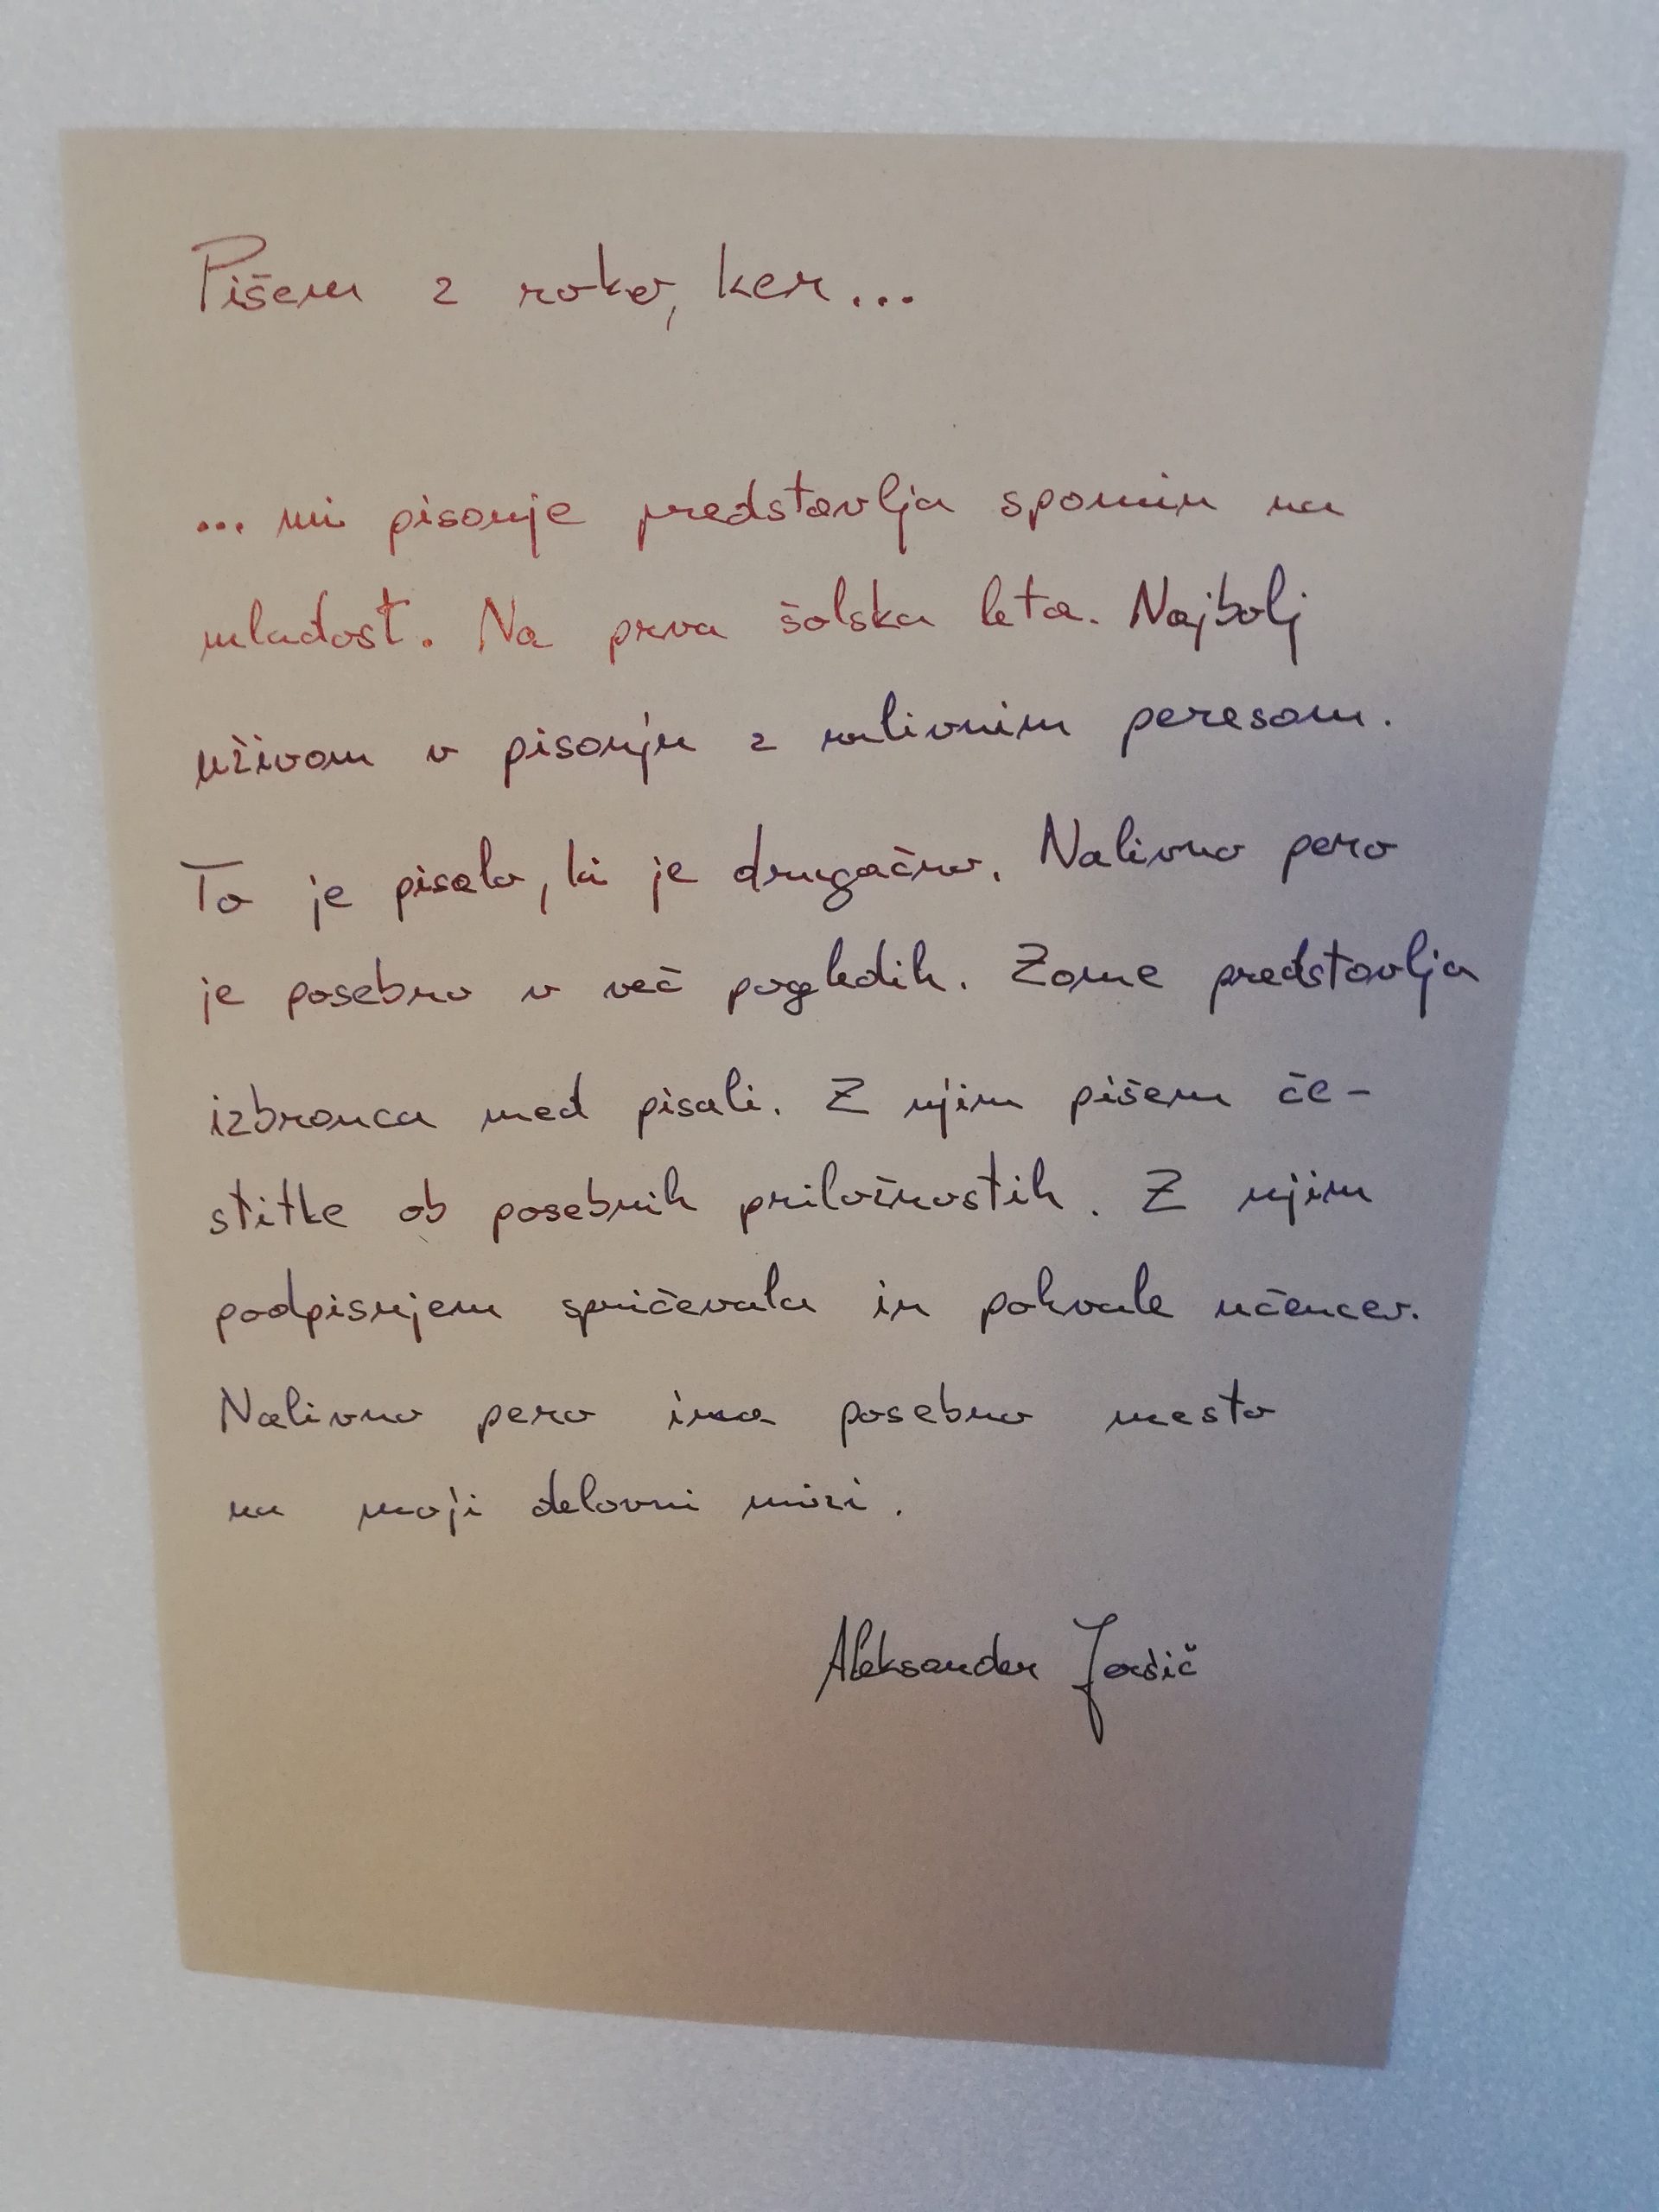 Pišem z roko, ker...
... mi pisanje predstavlja spomin na
mladost. Na prva šolska leta. Najbolj
uživam v pisanju z nalivnim peresom.
To je pisalo, ki je drugačno. Nalivno pero
je posebno v več pogledih. Zame predstavlja
izbranca med pisali. Z njim pišem če-
stitke ob posebnih priložnostih. Z njim
podpisujem spričevala in pohvale učencev.
Nalivno pero ima posebno mesto
na moji delovni mizi.
Aleksander